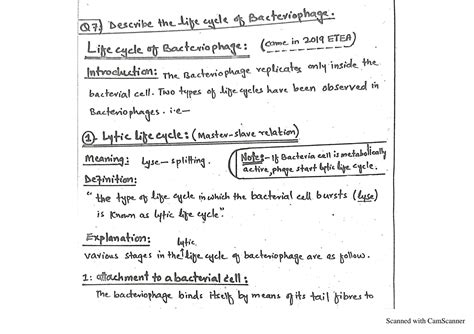 Q7. Describe the life cycle of Bacteriophage.
Life cycle of Bacteriophage: (came in 2019 ETEA)
Introduction: The Bacteriophage replicates only inside the
bacterial cell. Two types of life cycles have been observed in
Bacteriophages. i.e—
① Lytic life cycle: (Master-slave relation)
Meaning: lyse— splitting.
Note:- If Bacteria cell is metabolically
active, phage start lytic life cycle.
Definition:
"the type of life cycle in which the bacterial cell bursts (lyse)
is known as lytic life cycle".
Explanation:
various stages in the lytic life cycle of bacteriophage are as follow.
1: attachment to a bacterial cell:
The bacteriophage binds itself by means of its tail fibres to
Scanned with CamScanner